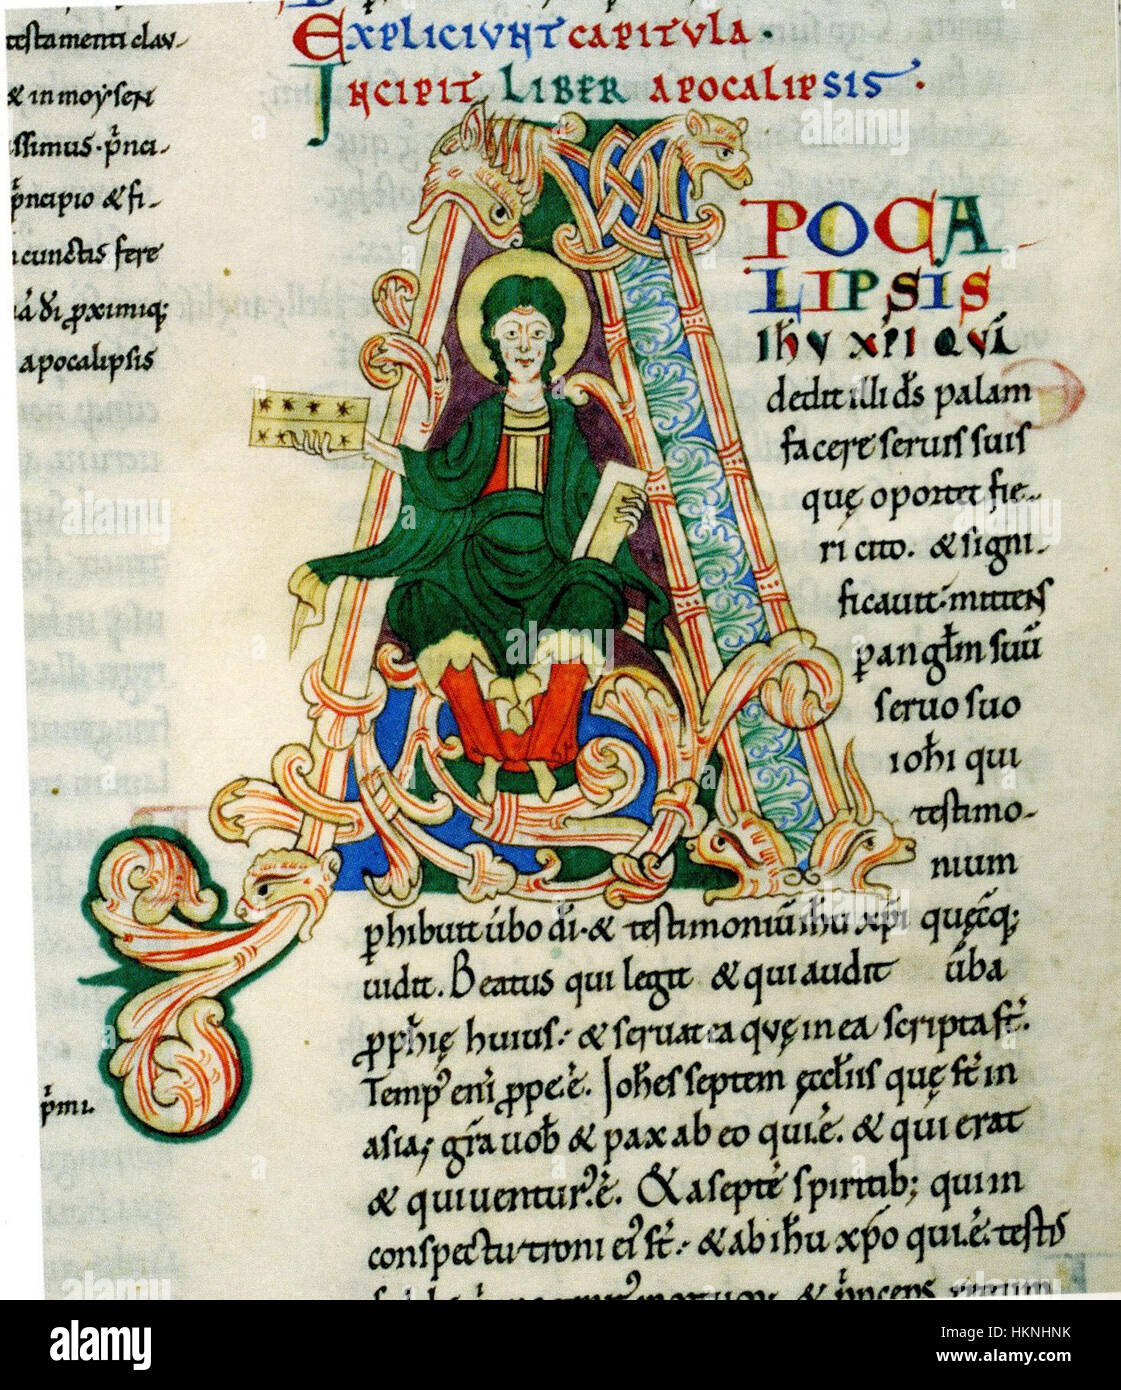 testamenti clau-
& in moy·sen
issimus· p̄nci-
p̄ncipio & fi-
cunctis fere
p̱ximiq;
apocalipsis
p̄mi.
EXPLICIUNT CAPITULA·
INCIPIT LIBER APOCALIPSIS·
APOCA
LIPSIS
IHV XPI QVĀ
dedit illi ds̄ palam
facere seruis suis
quę oportet fie-
ri cito. & signi-
ficauit· mittens
p̱ angl̄m suū
seruo suo
ioh̄i qui
testimo-
nium
p̱hibuit ūbo dī· & testimoniū ihu xp̄i quęcq;
uidit. Beatus qui legit & qui audit ūba
p̱ph̄ię huius: & seruat ea quę in ea scripta st̄.
Temp' eni p̱pe ē. Joh̄es septem ęccl̄iis quę st̄ in
asia; grā uob & pax ab eo qui ē. & qui erat
& qui uentur' ē. & a septē spiritib; qui in
conspectu troni ei' st̄: & ab ihu xp̄o qui ē. testis
alamy
Image ID: HKNHNK
www.alamy.com